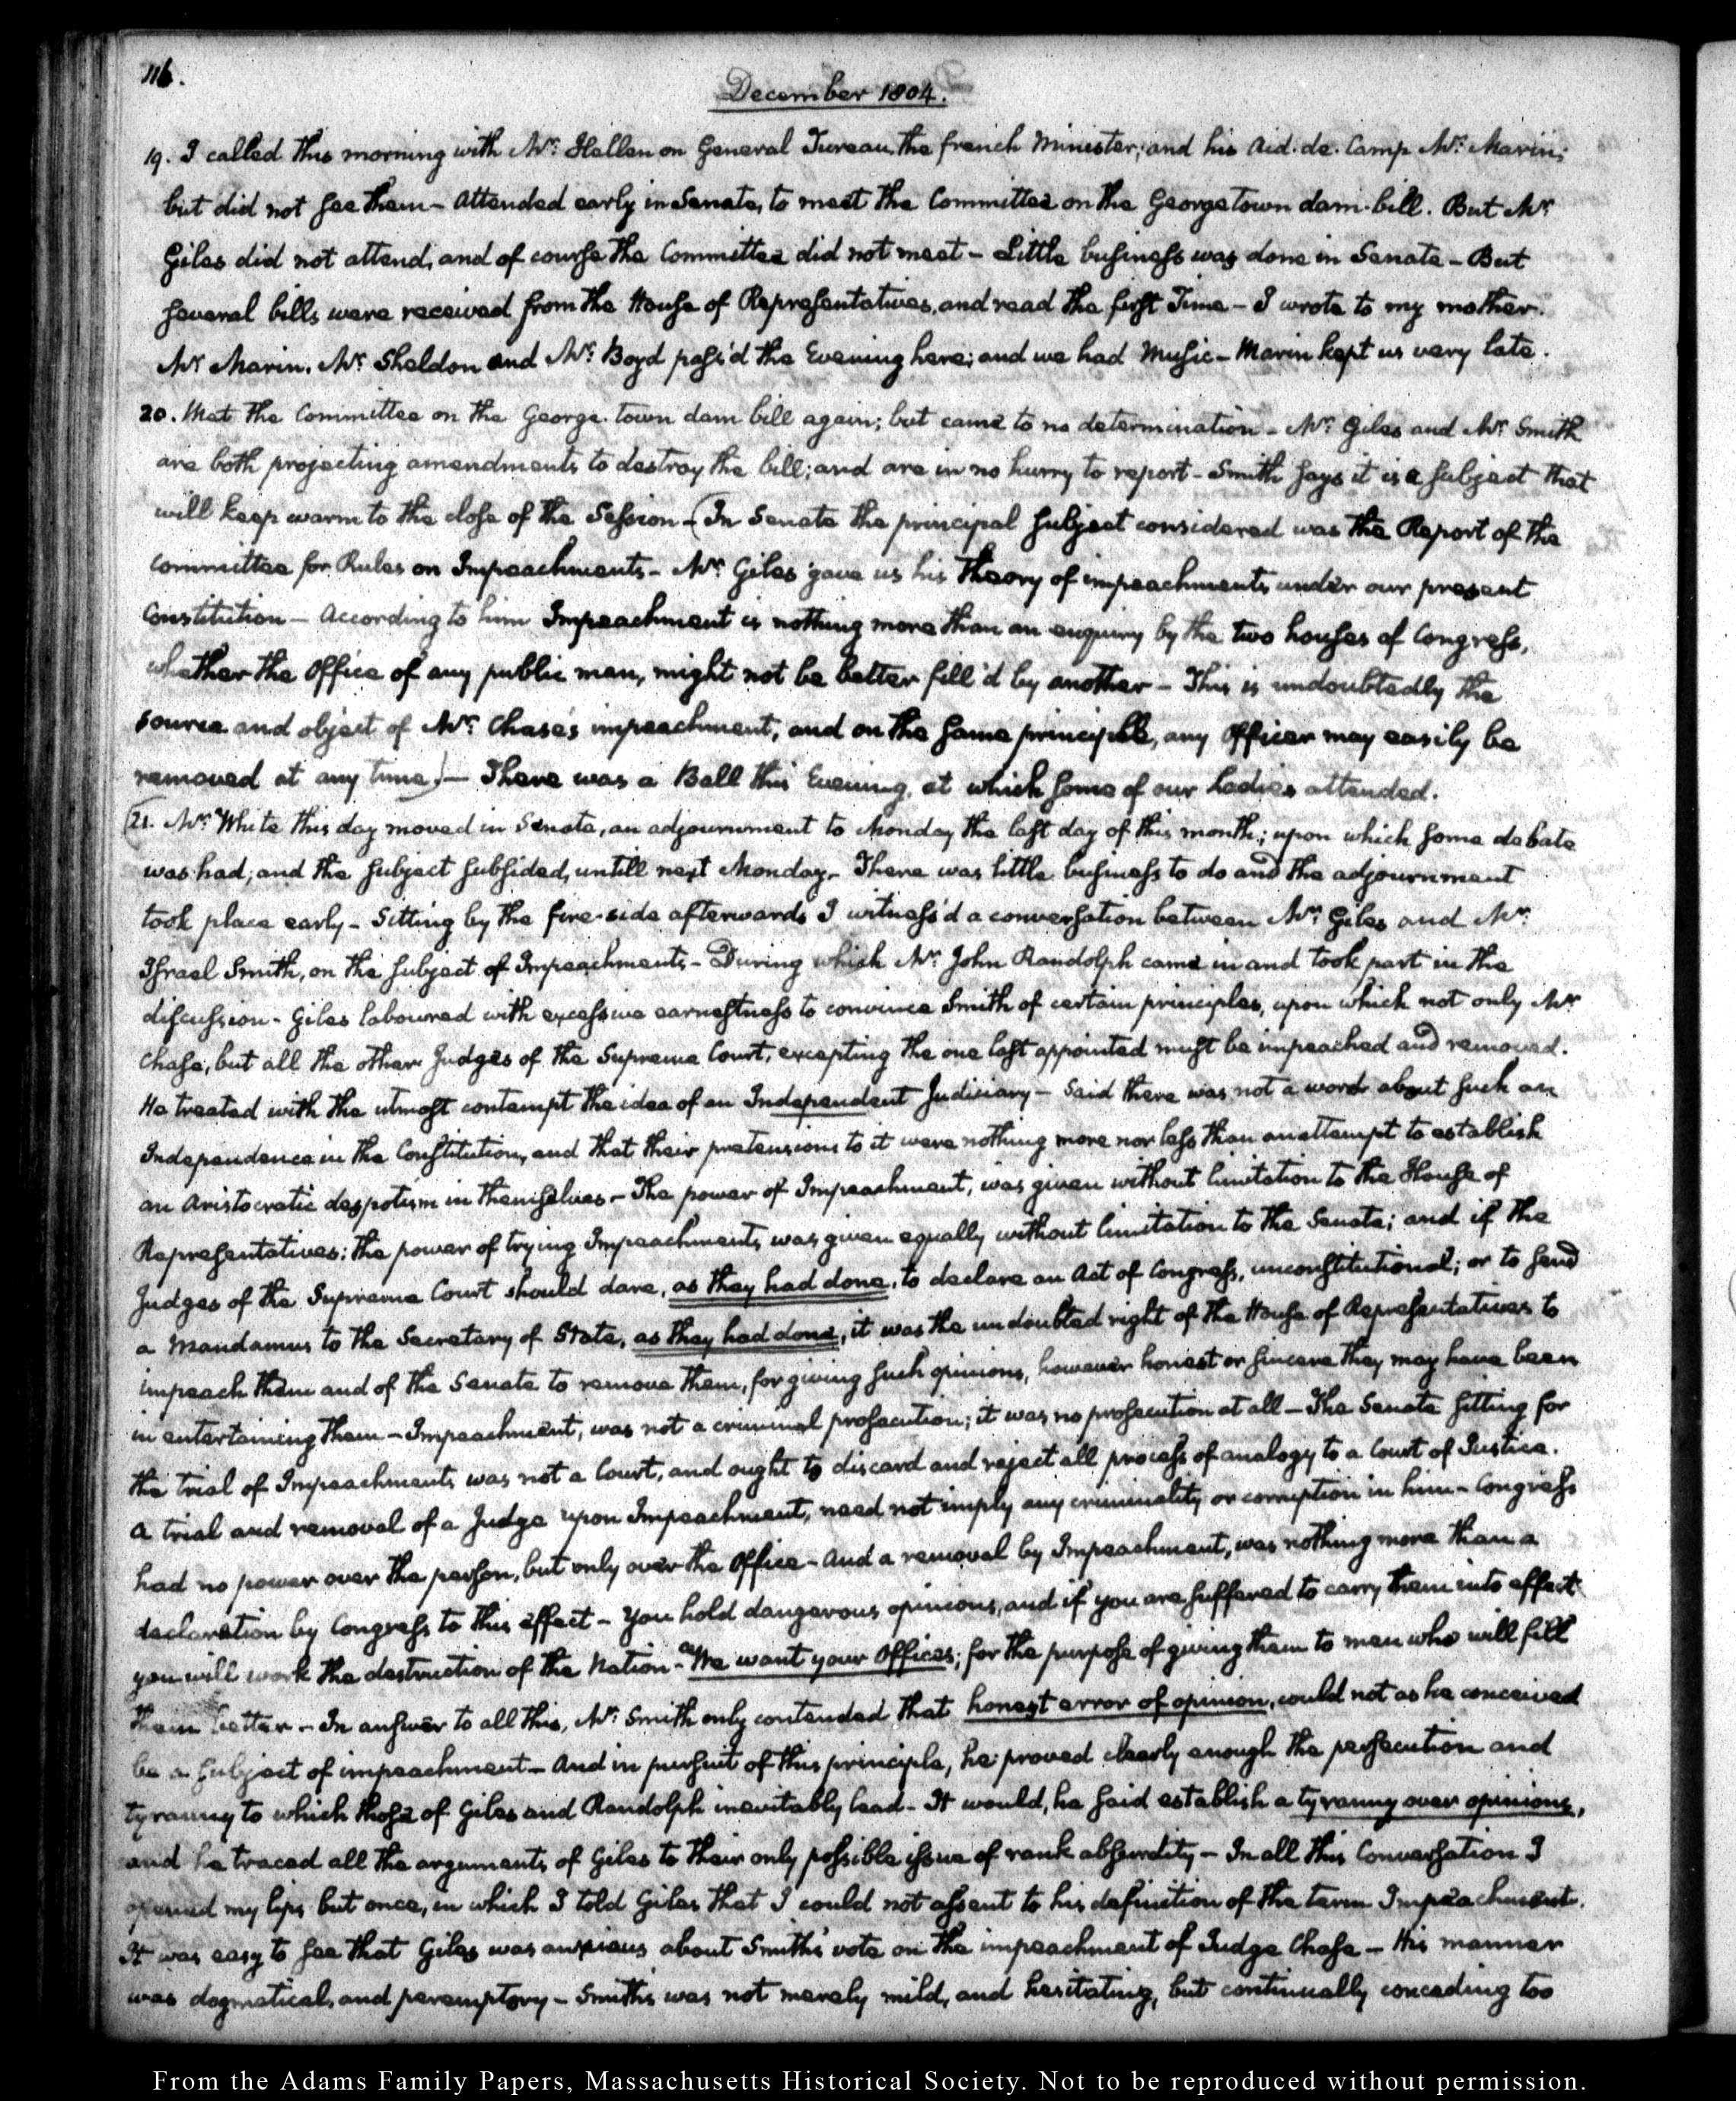 116.
December 1804.
19. I called this morning with Mr: Hellen on General Tureau, the french Minister; and his Aid. de. Camp Mr: Marin;
but did not see them — Attended early in Senate, to meet the Committee on the Georgetown dam-bill. But Mr:
Giles did not attend, and of course the Committee did not meet — Little business was done in Senate — But
several bills were received from the House of Representatives, and read the first Time — I wrote to my mother.
Mr Marin. Mr: Sheldon and Mr: Boyd pass'd the Evening here; and we had Music — Marin kept us very late.
20. Met the Committee on the George-town dam bill again; but came to no determination — Mr: Giles and Mr: Smith
are both projecting amendments to destroy the bill; and are in no hurry to report — Smith says it is a subject that
will keep warm to the close of the Session — (In Senate the principal subject considered was the Report of the
committee for Rules on Impeachments — Mr: Giles gave us his theory of impeachments under our present
Constitution — According to him Impeachment is nothing more than an enquiry by the two houses of Congress,
whether the Office of any public man, might not be better fill'd by another — This is undoubtedly the
source and object of Mr: Chase's impeachment, and on the same principle, any Officer may easily be
removed at any time.) — There was a Ball this Evening, at which some of our Ladies attended.
(21. Mr: White this day moved in Senate, an adjournment to Monday the last day of this month; upon which some debate
was had; and the subject subsided, untill next Monday — There was little business to do and the adjournment
took place early — Sitting by the fire-side afterwards I witness'd a conversation between Mr: Giles and Mr:
Israel Smith, on the subject of Impeachments — During which Mr: John Randolph came in and took part in the
discussion — Giles laboured with excessive earnestness to convince Smith of certain principles, upon which not only Mr:
Chase, but all the other Judges of the Supreme Court, excepting the one last appointed must be impeached and removed.
He treated with the utmost contempt the idea of an Independent Judiciary — Said there was not a word about such an
Independence in the Constitution, and that their pretensions to it were nothing more nor less than an attempt to establish
an Aristocratic despotism in themselves — The power of Impeachment, was given without limitation to the House of
Representatives: the power of trying Impeachments was given equally without limitation to the Senate; and if the
Judges of the Supreme Court should dare, as they had done, to declare an Act of Congress, unconstitutional; or to send
a Mandamus to the Secretary of State, as they had done, it was the undoubted right of the House of Representatives to
impeach them and of the Senate to remove them, for giving such opinions, however honest or sincere they may have been
in entertaining them — Impeachment, was not a criminal prosecution; it was no prosecution at all — The Senate sitting for
the trial of Impeachments was not a Court, and ought to discard and reject all process of analogy to a Court of Justice.
A trial and removal of a Judge upon Impeachment, need not imply any criminality or corruption in him — Congress
had no power over the person, but only over the Office — And a removal by Impeachment, was nothing more than a
declaration by Congress to this effect — You hold dangerous opinions, and if you are suffered to carry them into effect
you will work the destruction of the Nation — We want your Offices; for the purpose of giving them to men who will fill
them better — In answer to all this, Mr: Smith only contended that honest error of opinion, could not as he conceived
be a subject of impeachment — And in pursuit of this principle, he proved clearly enough the persecution and
tyranny to which those of Giles and Randolph inevitably lead — It would, he said establish a tyranny over opinions,
and he traced all the arguments of Giles to their only possible issue of rank absurdity — In all this Conversation I
opened my lips but once, in which I told Giles that I could not assent to his definition of the term Impeachment.
It was easy to see that Giles was anxious about Smith's vote on the impeachment of Judge Chase — His manner
was dogmatical, and peremptory — Smith's was not merely mild, and hesitating, but continually conceding too
From the Adams Family Papers, Massachusetts Historical Society. Not to be reproduced without permission.